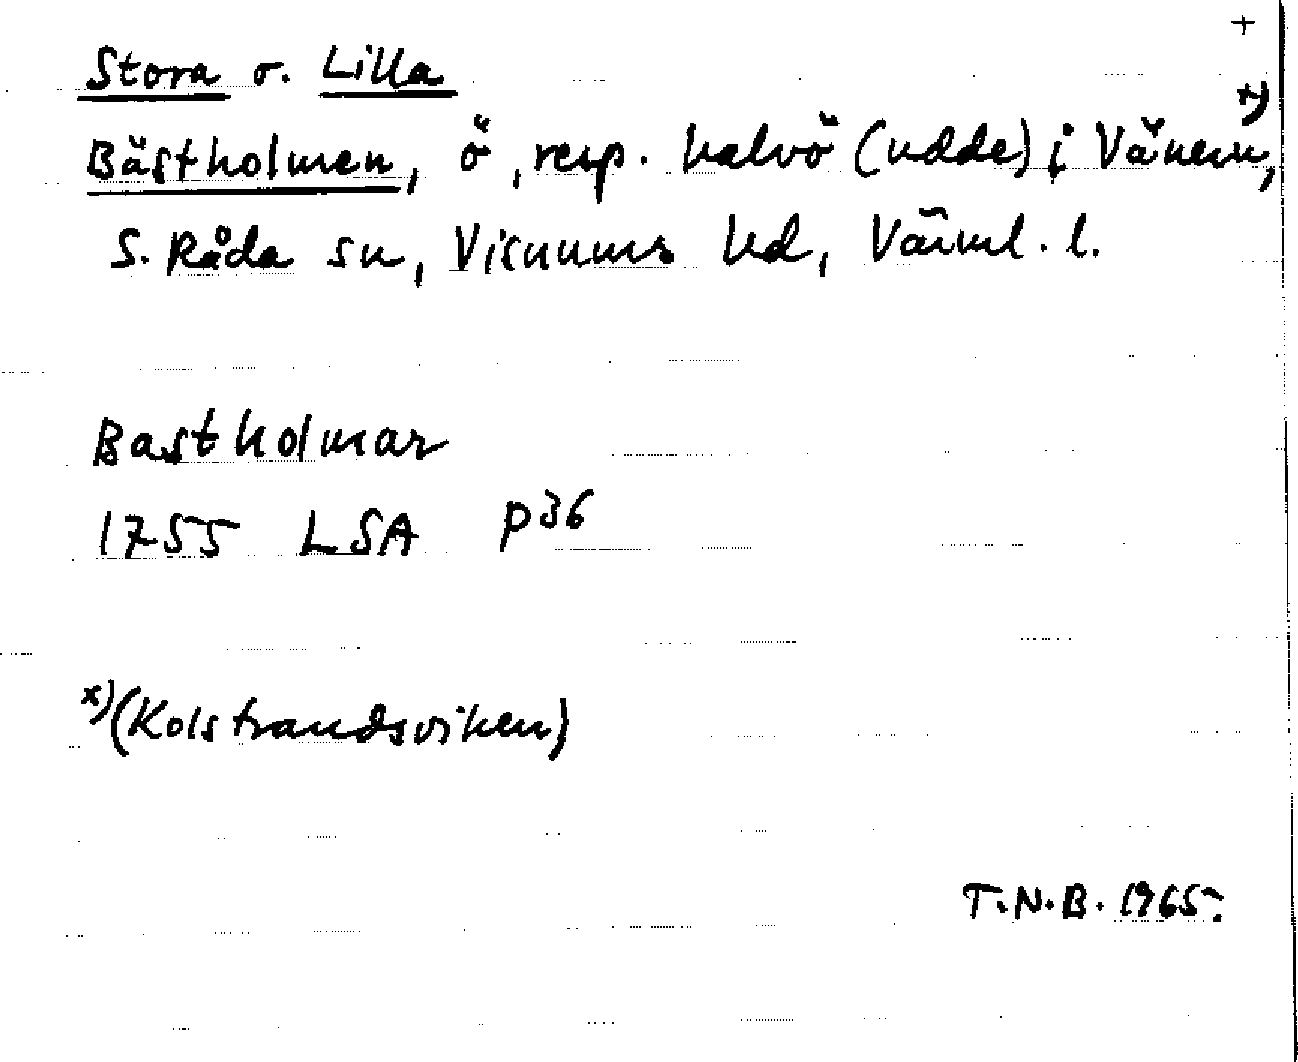 +
Stora o. Lilla
Bästholmen, ö, resp. halvö (udde) i Vänern, x)
S. Råda sn, Visnums hd, Värml. l.
Bastholmar
1755 LSA P36
x) (Kolstrandsviken)
T.N.B. 1965.